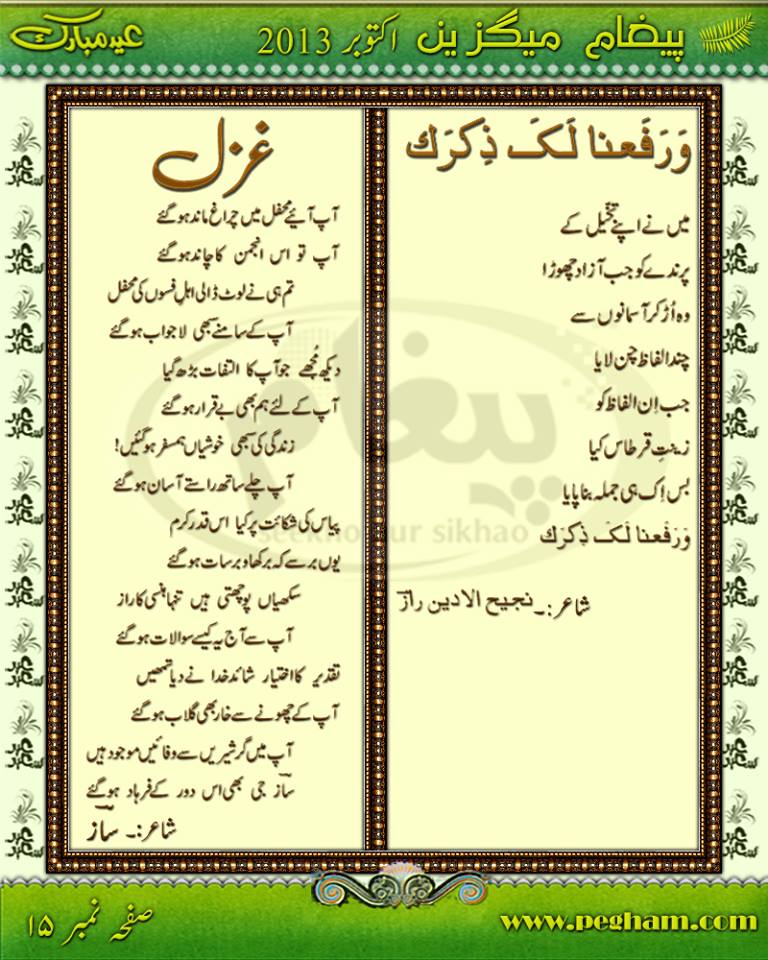 پیغام میگزین اکتوبر 2013
عید مبارک
وَرَفَعنا لَکَ ذِکرَك
میں نے اپنے تخیل کے
پرندے کو جب آزاد چھوڑا
وہ اُڑ کر آسمانوں سے
چند الفاظ چن لایا
جب اِن الفاظ کو
زینتِ قرطاس کیا
بس اِک ہی جملہ بنا پایا
وَرَفَعنا لَکَ ذِکرَك
شاعر:۔ نجیح الادین راز
غزل
آپ آئے محفل میں چراغ ماند ہو گئے
آپ تو اس انجمن کا چاند ہو گئے
تم ہی نے لوٹ ڈالی اہلِ فسوں کی محفل
آپ کے سامنے سبھی لاجواب ہو گئے
دیکھ مُجھے جو آپ کا التفات بڑھ گیا
آپ کے لئے ہم بھی بے قرار ہو گئے
زندگی کی سبھی خوشیاں ہمسفر ہو گئیں!
آپ چلے ساتھ راستے آسان ہو گئے
پیاس کی شکائت پر کیا اس قدر کرم
یوں برسے کہ برکھا و برسات ہو گئے
سکھیاں پوچھتی ہیں تنہا ہنسی کا راز
آپ سے آج یہ کیسے سوالات ہو گئے
تقدیر کا اختیار شائد خدا نے دیا تمھیں
آپ کے چھونے سے خار بھی گلاب ہو گئے
آپ میں گر شیریں سے وفائیں موجود ہیں
ساز جی بھی اس دور کے فرہاد ہو گئے
شاعر:۔ ساز
پیغام
seekho aur sikhao
صفحہ نمبر ۱۵
www.pegham.com